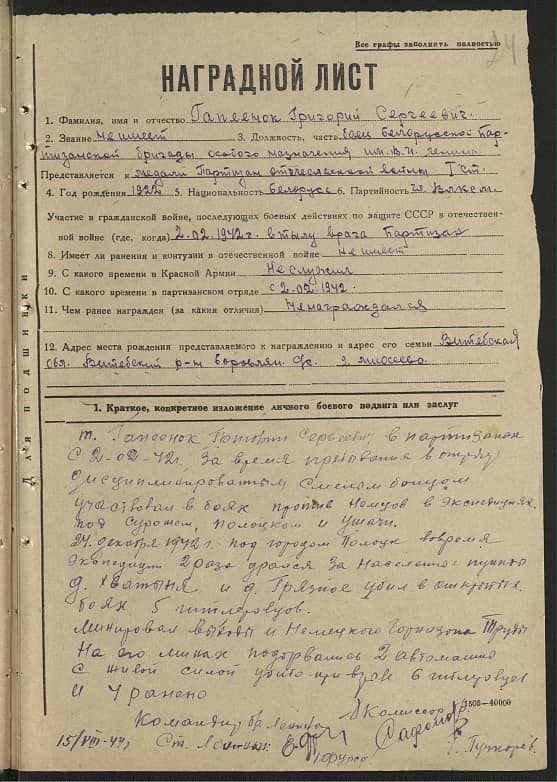 Все графы заполнять полностью
24
НАГРАДНОЙ ЛИСТ
1. Фамилия, имя и отчество Гапеенок Григорий Сергеевич.
2. Звание не имеет 3. Должность, часть боец белорусской Пар-
тизанской бригады особого назначения им. В.И. Ленина
Представляется к медали Партизан отечественной войны I ст.
4. Год рождения 1922 5. Национальность белорусс 6. Партийность чл. ВЛКСМ
Участие в гражданской войне, последующих боевых действиях по защите СССР в отечествен-
ной войне (где, когда) 2.02.1942г. в тылу врага Партизан
8. Имеет ли ранения и контузии в отечественной войне не имеет
9. С какого времени в Красной Армии Не служил
10. С какого времени в партизанском отряде с 2.02.1942.
11. Чем ранее награжден (за какия отличия) Не награждался
12. Адрес места рождения представляемого к награждению и адрес его семьи Витебская
обл. Витебский р-н с/с. д.
Для подшивки
1. Краткое, конкретное изложение личного боевого подвига или заслуг
т. Гапеенок Григорий Сергеевич в партизанах
с 2-02-42г. За время пребывания в отряде
дисциплинированым смелым бойцом
участвовал в боях против Немцов в Экспедициях.
под Суражем, Полоцком и Ушачи.
24 декабря 1942 г. под городом Полоцк вовремя
Экспедиции 2 раза дрался за населеные пункты
д. и д. Грязное убил в открытых
боях 5 гитлеровцов.
Минировал и Немецкого Горнизона Труды
На его минах подорвались 2 автомашины
с живой силой убито при взрыве 6 гитлеровцев
и 4 ранено
Командир бр. Комиссар бр.
3505-40000
15/VIII-44г. Ст. Лейтенант